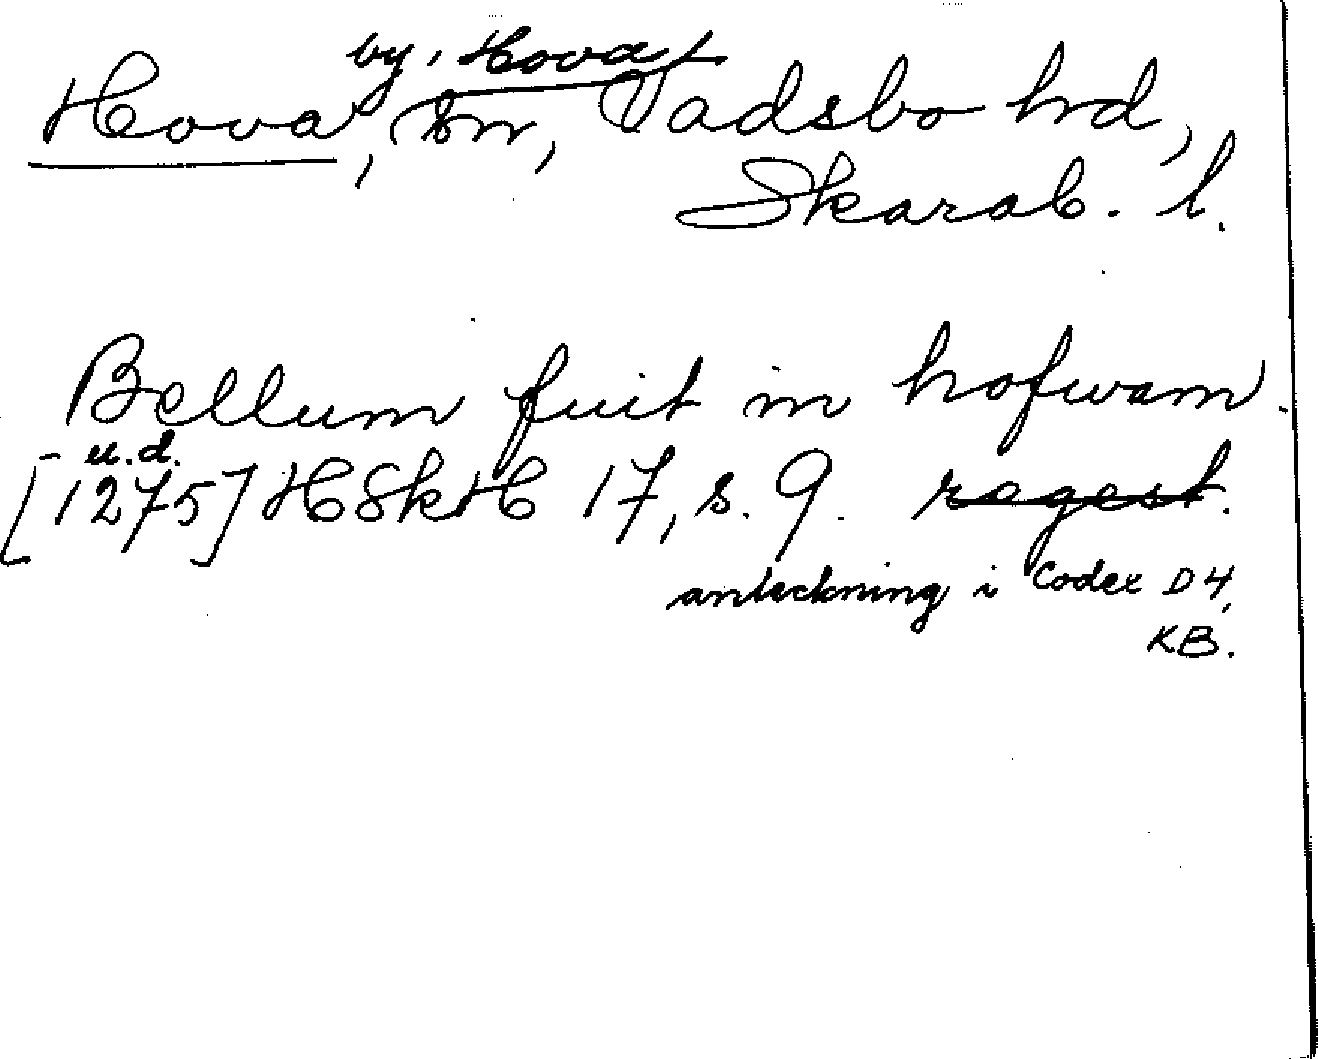 by, Hova
Hova, sn, Vadsbo hd,
Skarab. l.
Bellum fuit in hofwam.
u.d.
[1275] HSkH 17, s. 9. regest.
anteckning i Codex D4,
KB.